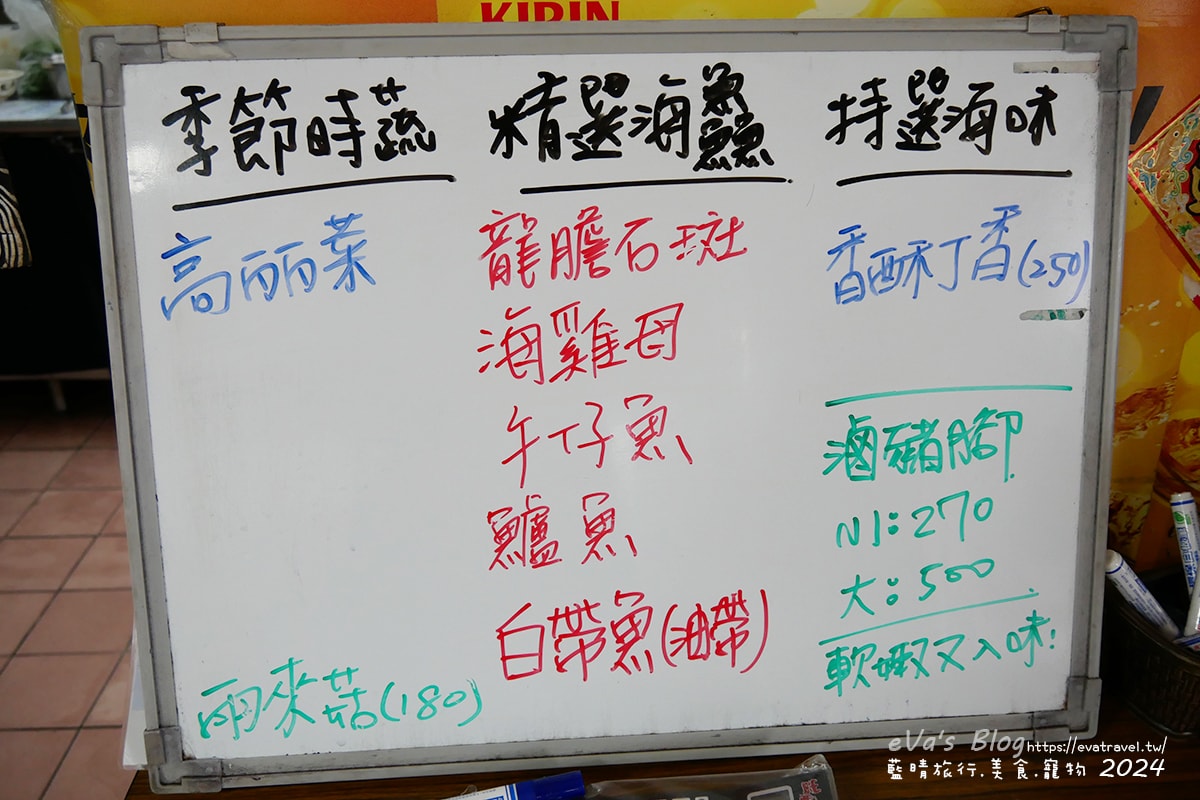 KIRIN
季節時蔬
高丽菜
雨來菇(180)
精選海鱻
龍膽石斑
海雞母
午仔魚
鱸魚
白帶魚(油帶)
特選海味
香酥丁香(250)
滷豬腳
小:270
大:500
軟嫩又入味!
eVa's Blog https://evatravel.tw/
藍晴旅行.美食.寵物 2024